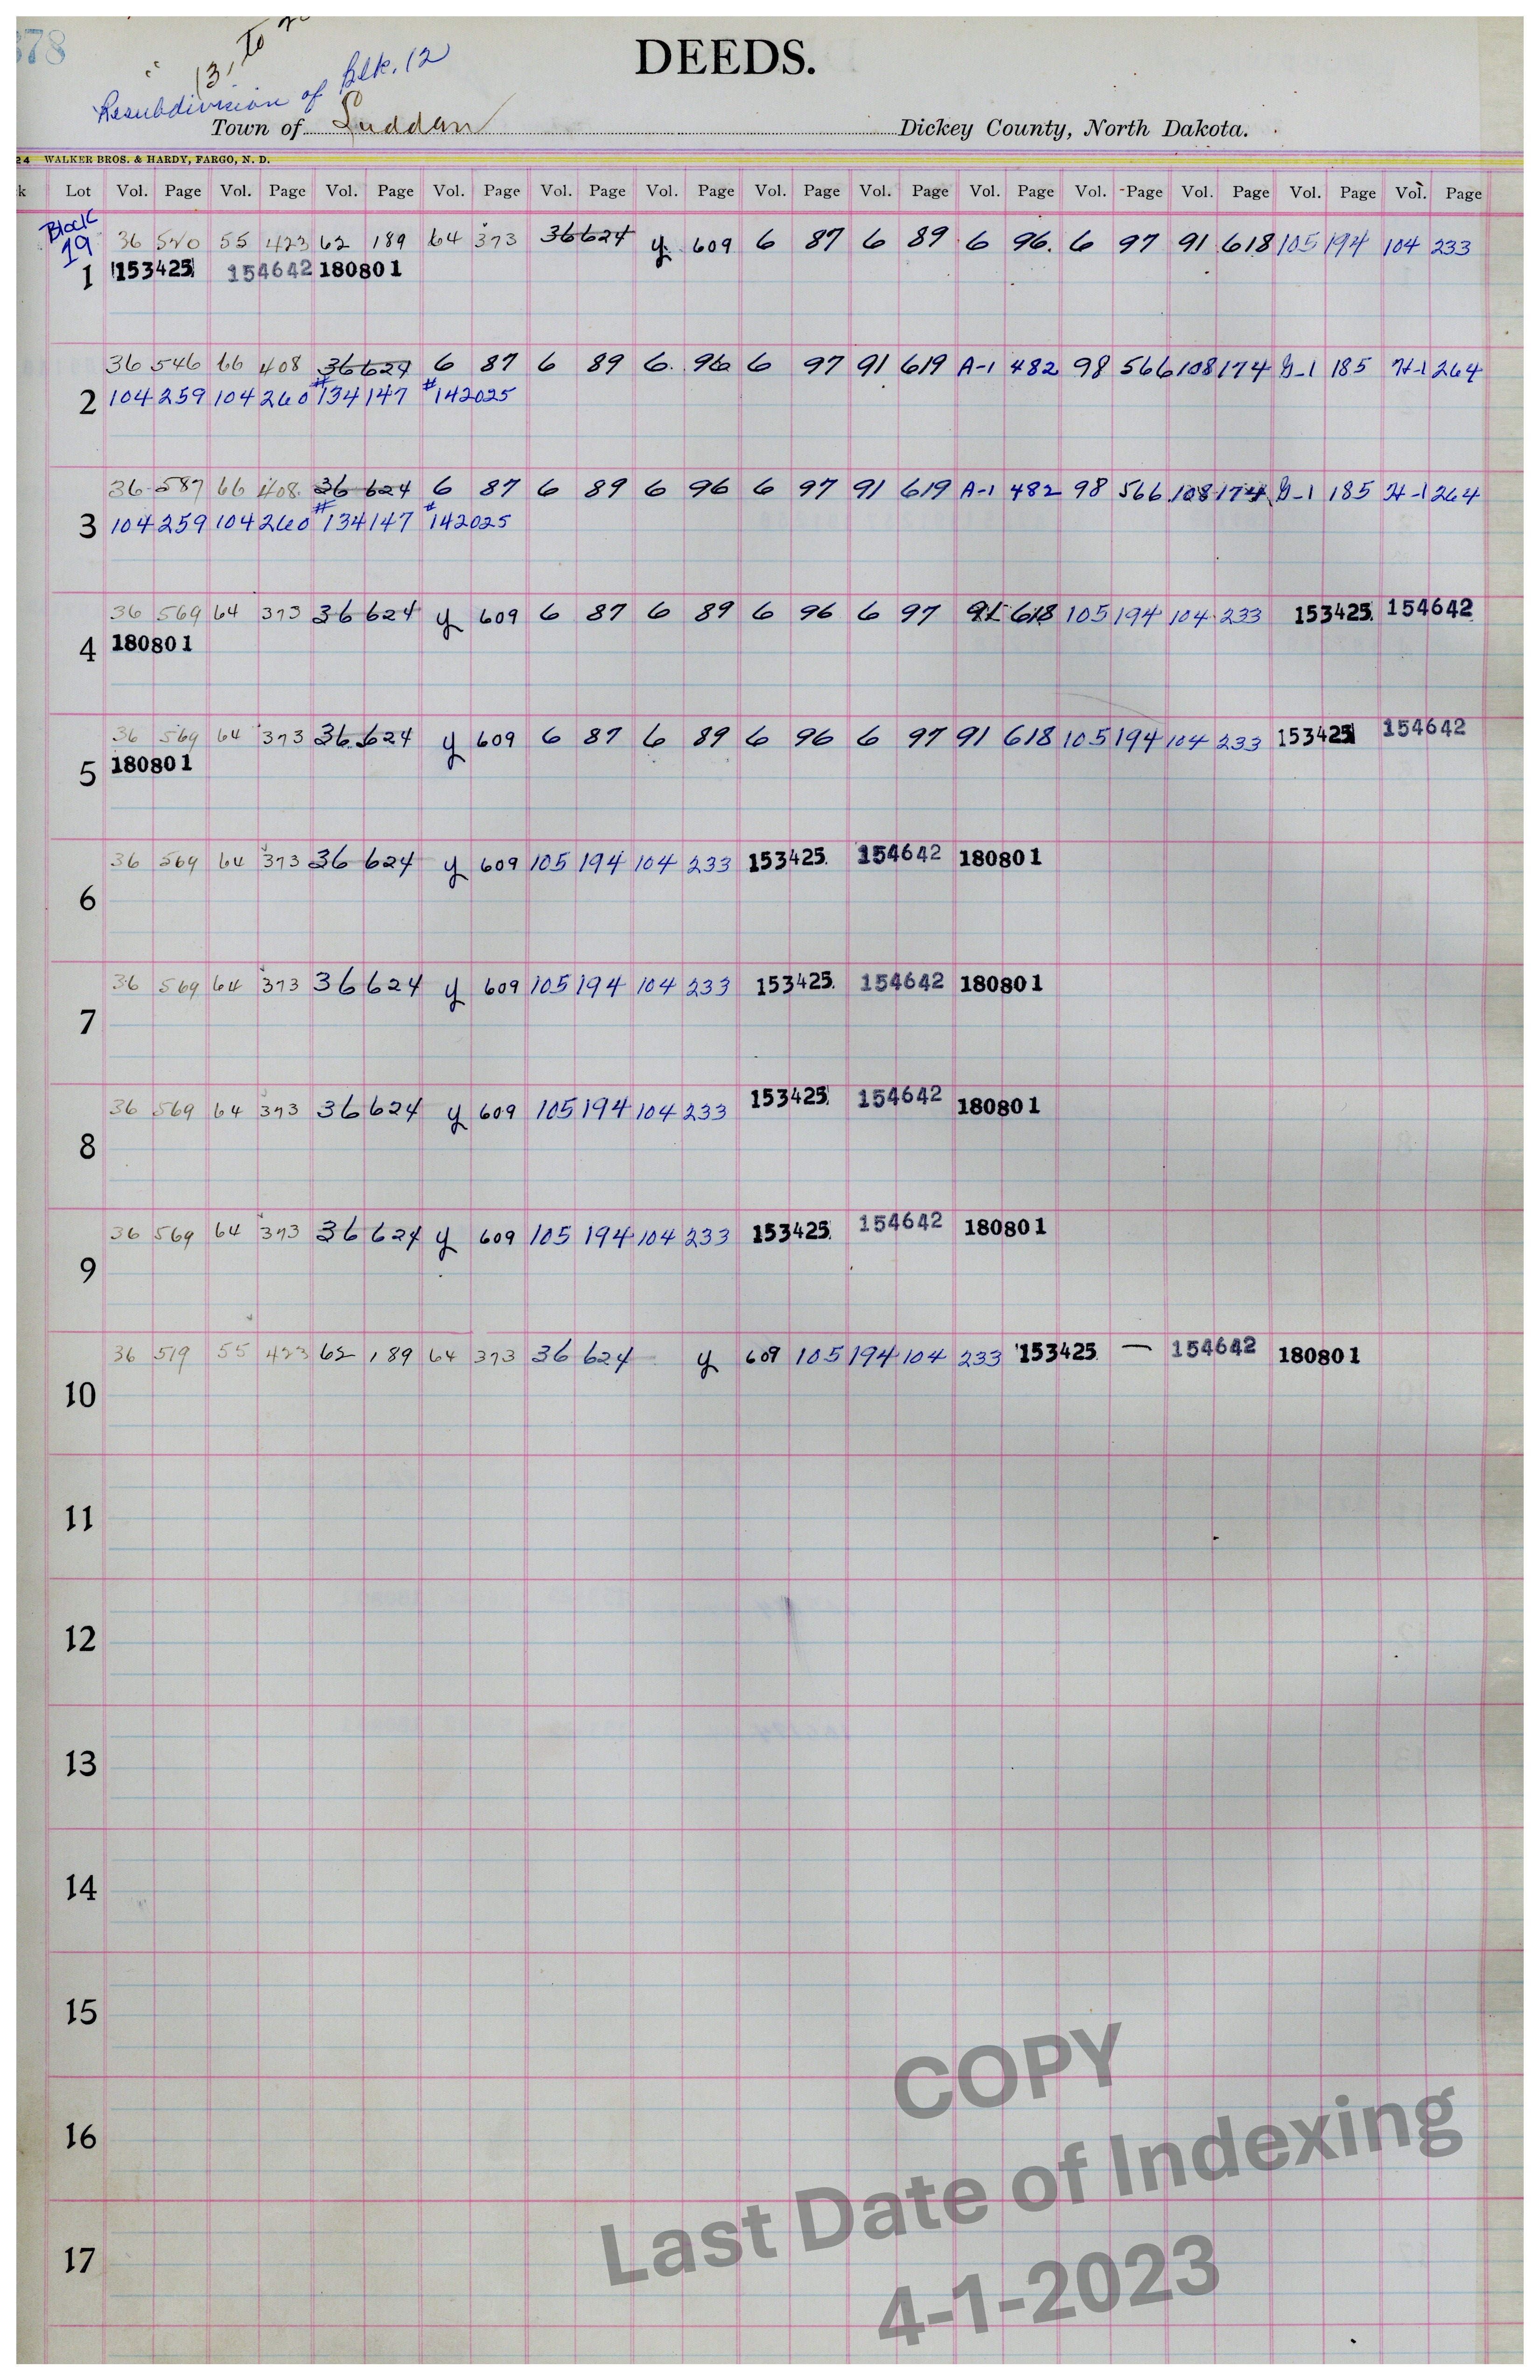 378
" 13, To
DEEDS.
Resubdivision of Blk. 12
Town of Ludden Dickey County, North Dakota.
24 WALKER BROS. & HARDY, FARGO, N. D.
k Lot Vol. Page Vol. Page Vol. Page Vol. Page Vol. Page Vol. Page Vol. Page Vol. Page Vol. Page Vol. Page Vol. Page Vol. Page Vol. Page
Block
19 36 520 55 423 62 189 64 373 36 624 y 609 6 87 6 89 6 96 6 97 91 618 105 194 104 233
1 153425 154642 180801
36 546 66 408 36 624 6 87 6 89 6 96 6 97 91 619 A-1 482 98 566 108 174 G-1 185 H-1 264
2 104 259 104 260 #134147 #142025
36 587 66 408 36 624 6 87 6 89 6 96 6 97 91 619 A-1 482 98 566 108 174 G-1 185 H-1 264
3 104 259 104 260 #134147 #142025
36 569 64 373 36 624 y 609 6 87 6 89 6 96 6 97 91 618 105 194 104 233 153425 154642
4 180801
36 569 64 373 36 624 y 609 6 87 6 89 6 96 6 97 91 618 105 194 104 233 153425 154642
5 180801
36 569 64 373 36 624 y 609 105 194 104 233 153425 154642 180801
6
36 569 64 373 36 624 y 609 105 194 104 233 153425 154642 180801
7
36 569 64 373 36 624 y 609 105 194 104 233 153425 154642 180801
8
36 569 64 373 36 624 y 609 105 194 104 233 153425 154642 180801
9
36 519 55 423 62 189 64 373 36 624 y 609 105 194 104 233 153425 — 154642 180801
10
11
12
13
14
15
16
17
COPY
Last Date of Indexing
4-1-2023